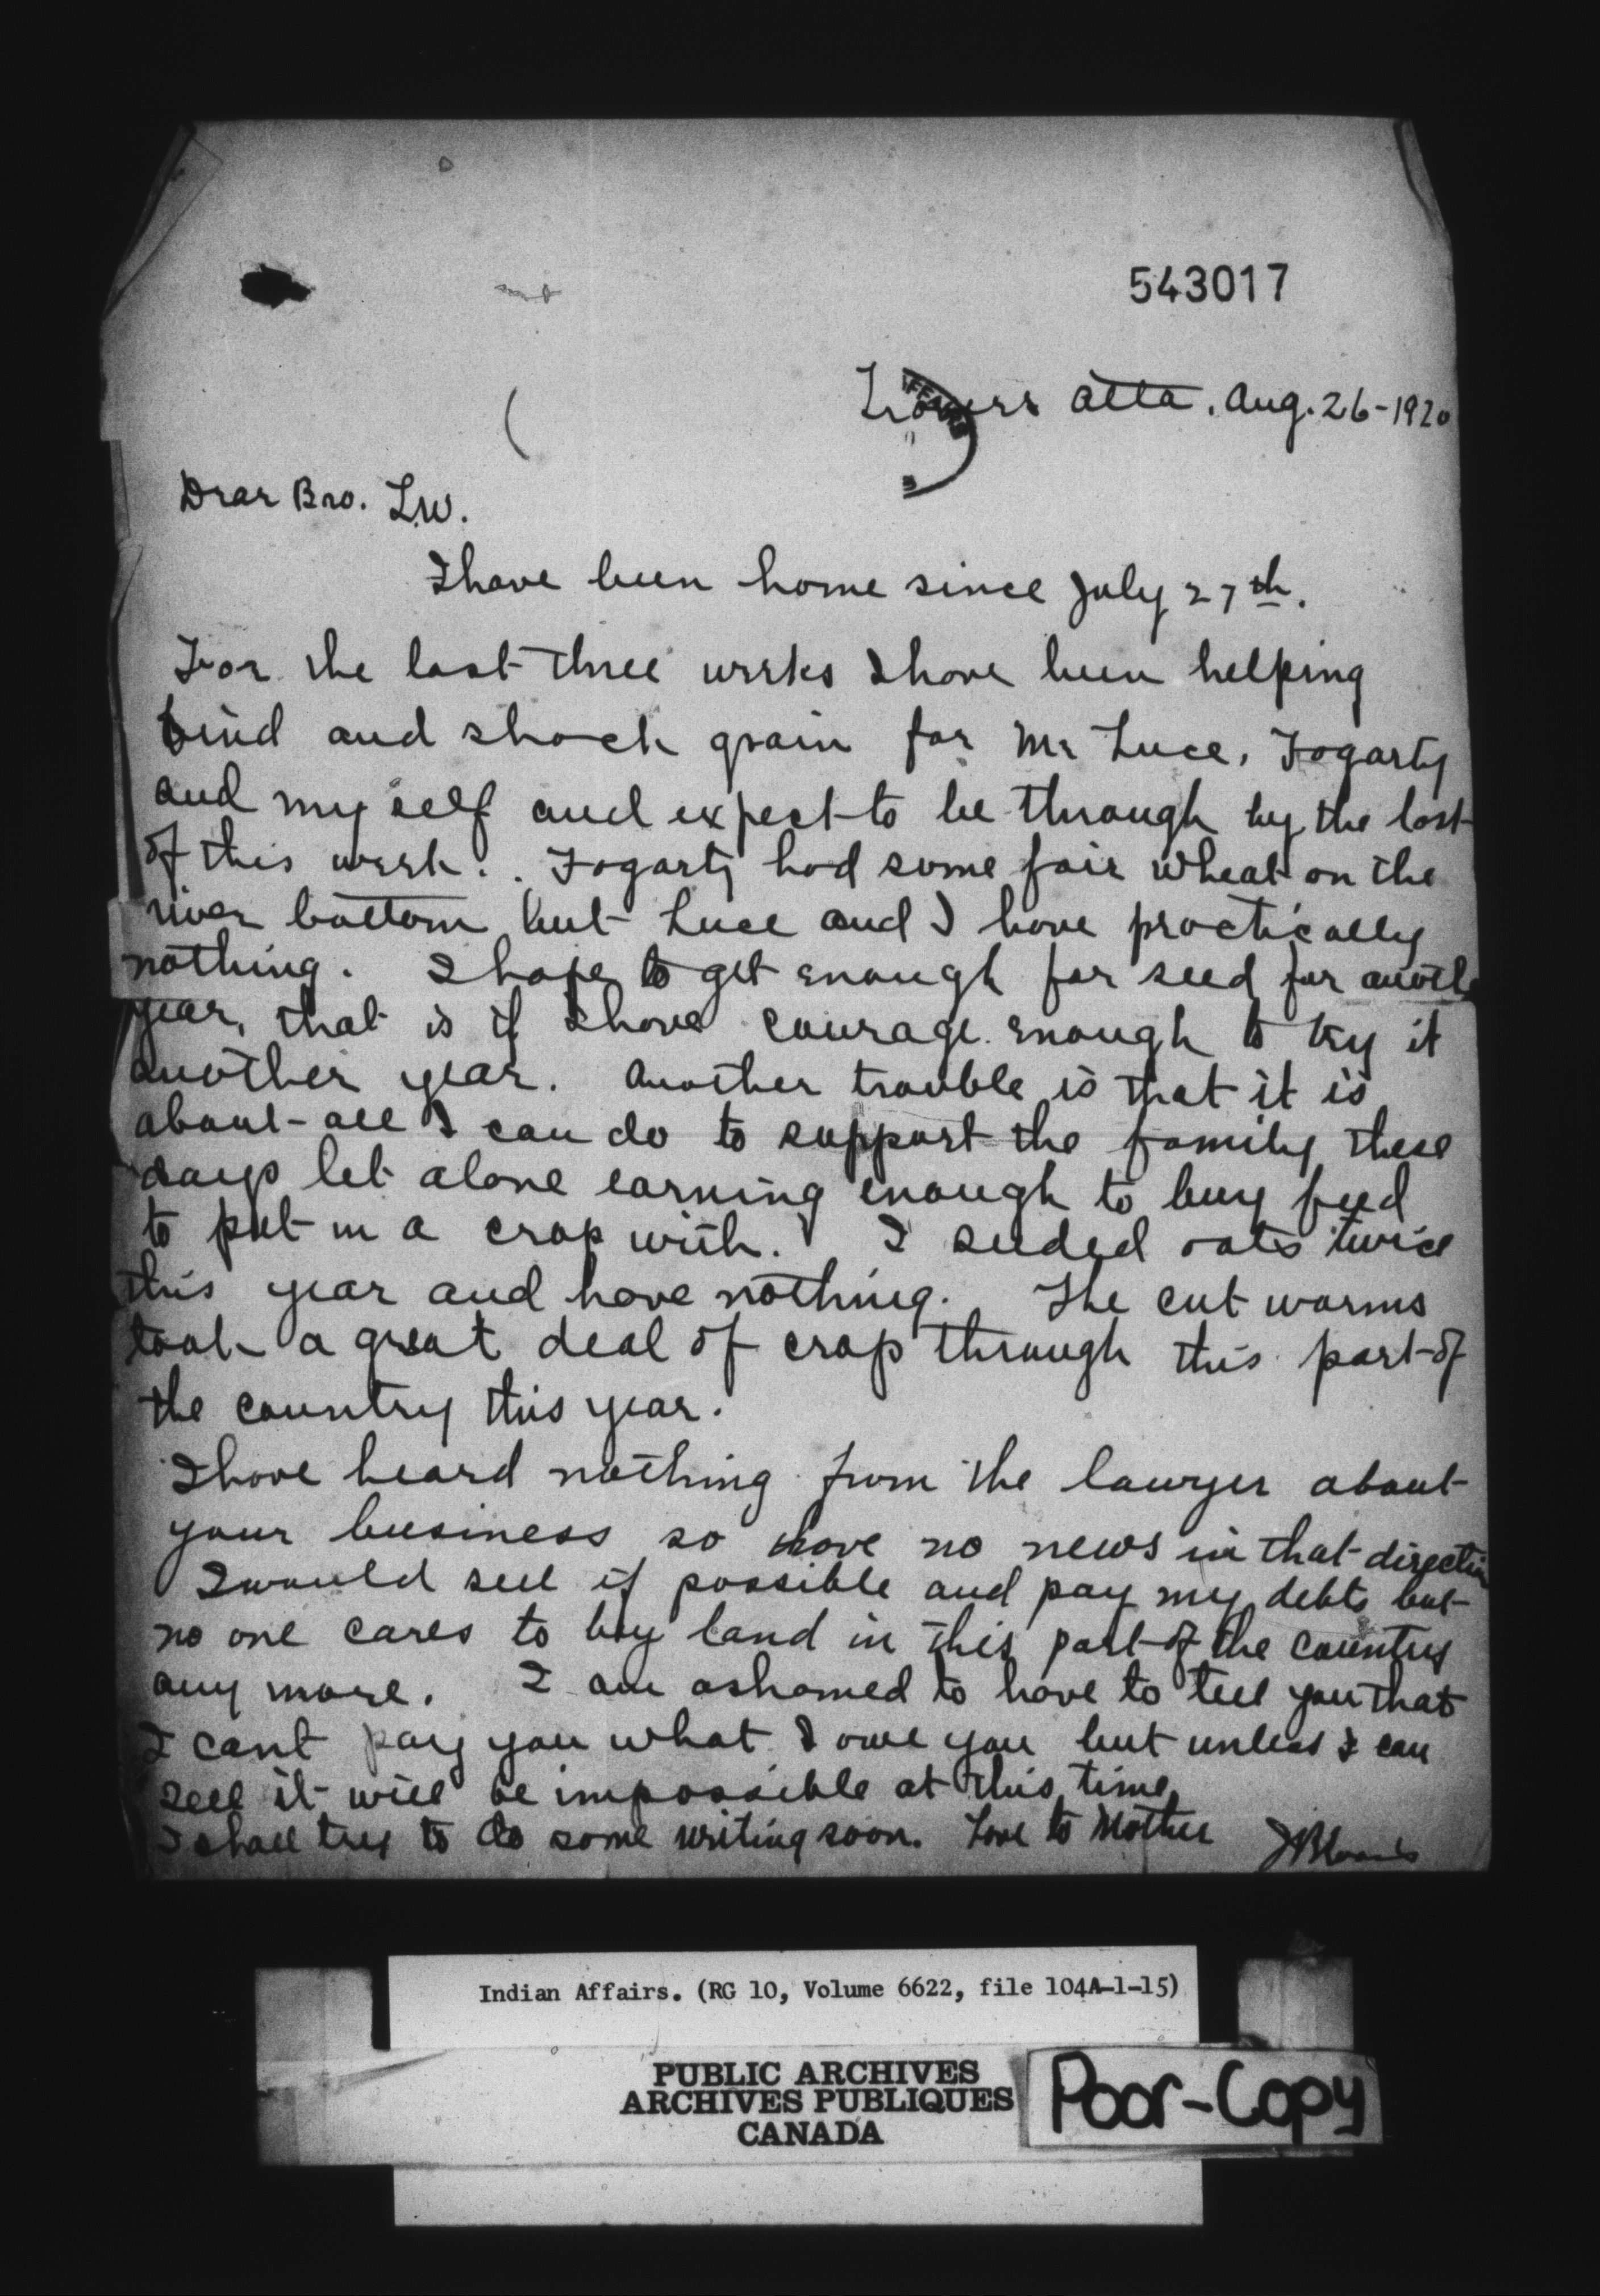 543017
Alta. Aug. 26-1920
Dear Bro. L.W.
I have been home since July 27th.
For the last three weeks I have been helping
bind and shock grain for Mr Luce, Fogarty
and my self and expect to be through by the last
of this week. Fogarty had some fair wheat on the
river bottom but Luce and I have practically
nothing. I hope to get enough for seed for another
year, that is if I have courage enough to try it
another year. Another trouble is that it is
about all I can do to support the family these
days let alone earning enough to buy feed
to put in a crop with. I seeded oats twice
this year and have nothing. The cut worms
took a great deal of crop through this part of
the country this year.
I have heard nothing from the lawyer about
your business so have no news in that direction
I would sell if possible and pay my debts but
no one cares to buy land in this part of the country
any more. I am ashamed to have to tell you that
I cant pay you what I owe you but unless I can
sell it will be impossible at this time
I shall try to do some writing soon. Love to Mother
Indian Affairs. (RG 10, Volume 6622, file 104A-1-15)
PUBLIC ARCHIVES
ARCHIVES PUBLIQUES
CANADA
Poor-Copy